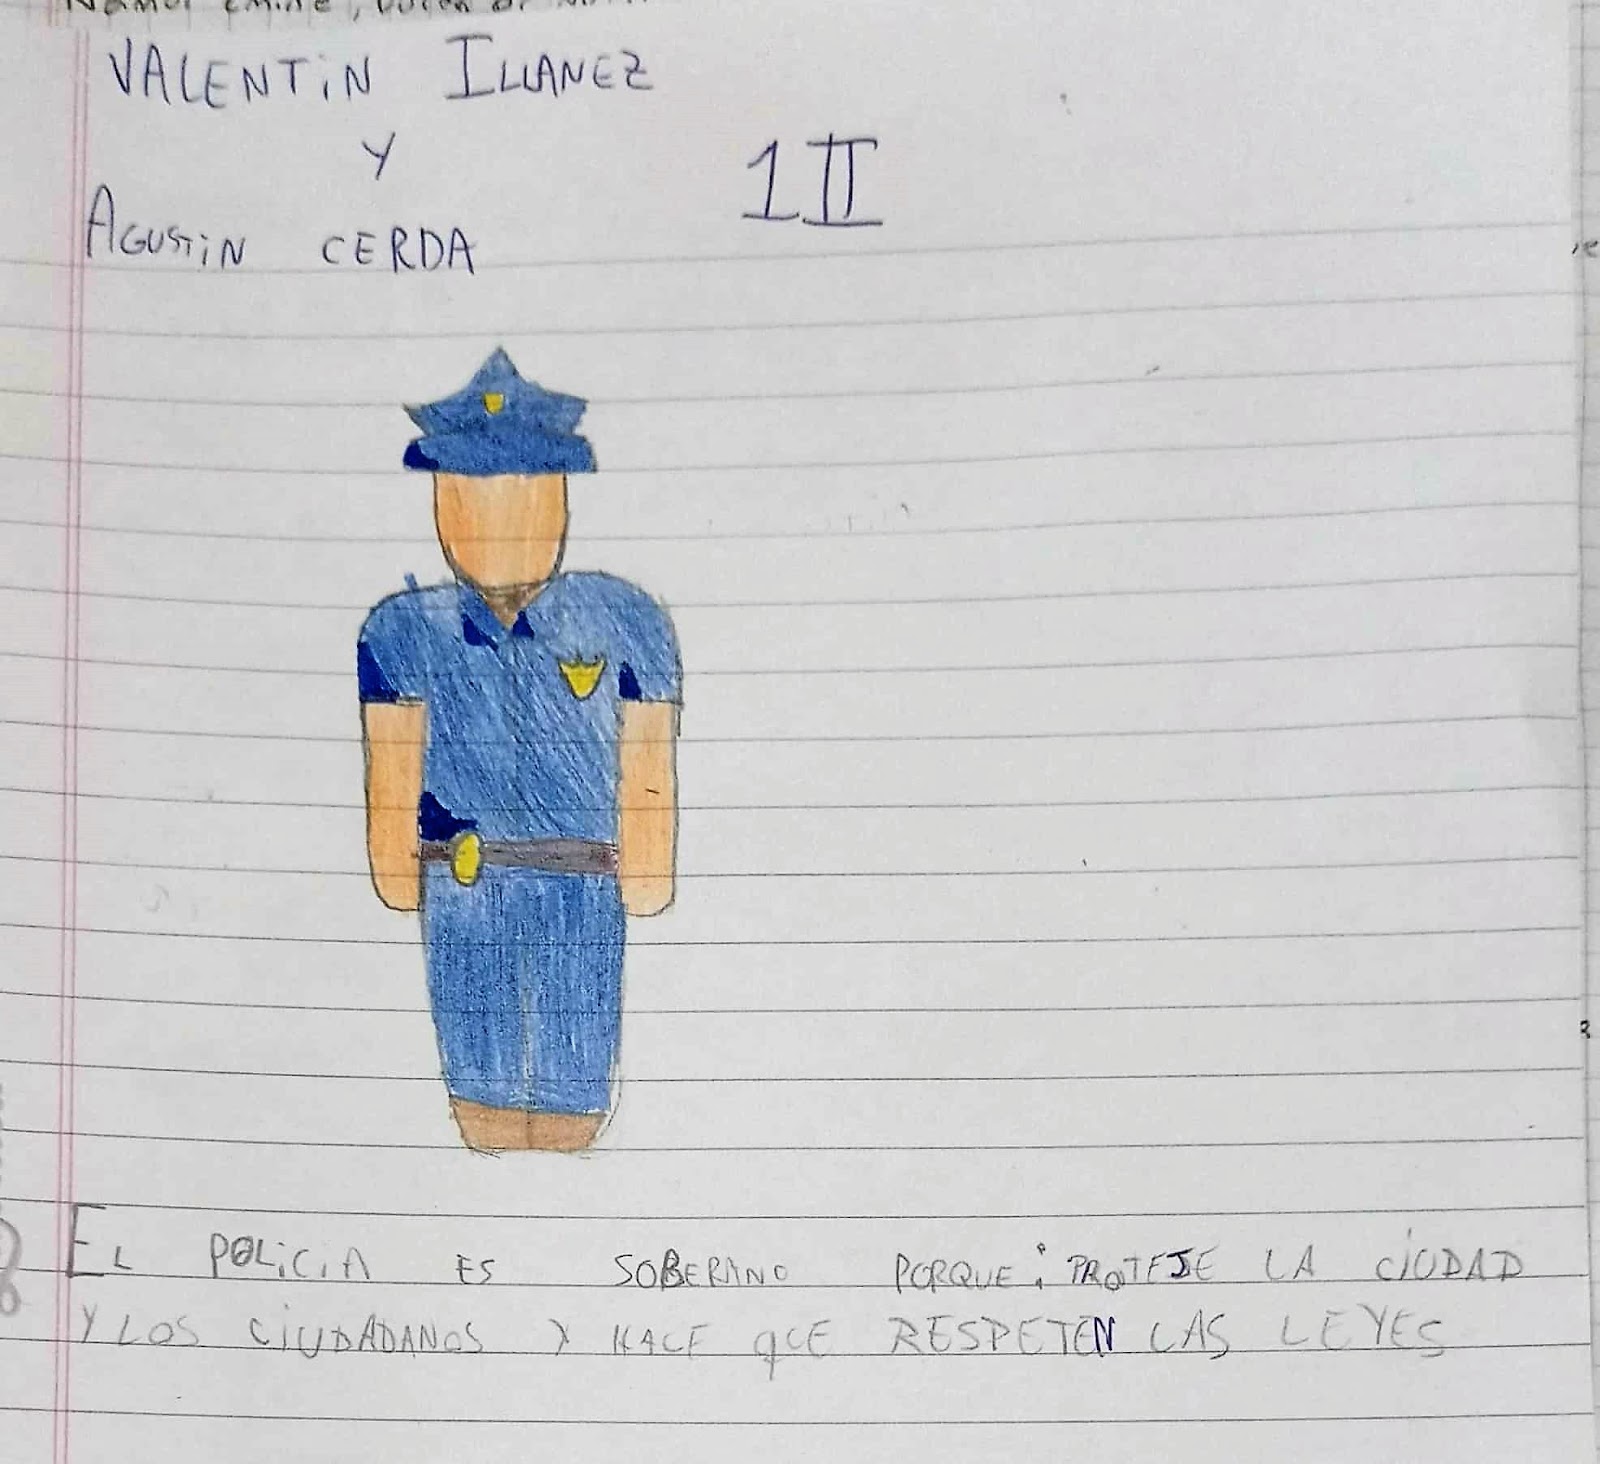 VALENTIN ILLANEZ
Y
1 II
AGUSTIN CERDA
EL POLICIA ES SOBERANO PORQUE: PROTEJE LA CIUDAD
Y LOS CIUDADANOS Y HACE QUE RESPETEN LAS LEYES